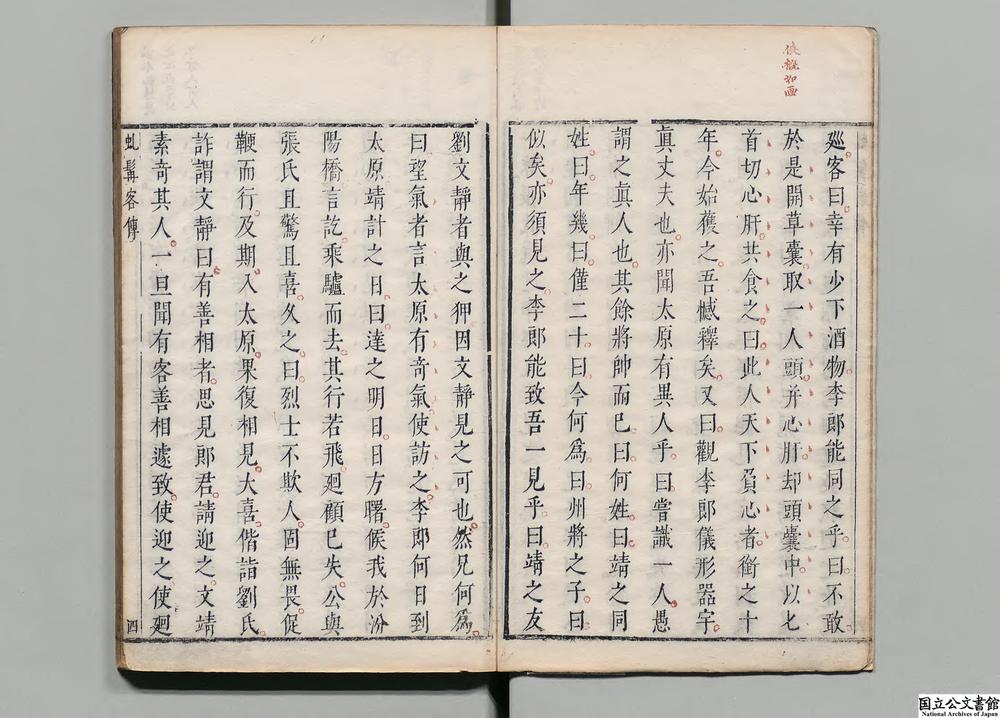 俠概如画
廵客曰幸有少下酒物李郎能同之乎曰不敢
於是開草囊取一人頭并心肝却頭囊中以匕
首切心肝共食之曰此人天下負心者銜之十
年今始獲之吾憾釋矣又曰觀李郎儀形器宇
眞丈夫也亦聞太原有異人乎曰嘗識一人愚
謂之眞人也其餘將帥而已曰何姓曰靖之同
姓曰年幾曰僅二十曰今何爲曰州將之子曰
似矣亦須見之李郎能致吾一見乎曰靖之友
劉文靜者與之狎因文靜見之可也然兄何爲
曰望氣者言太原有奇氣使訪之李郎何日到
太原靖計之日曰達之明日日方曙候我於汾
陽橋言訖乘驢而去其行若飛廻顧已失公與
張氏且驚且喜久之曰烈士不欺人固無畏促
鞭而行及期入太原果復相見大喜偕詣劉氏
詐謂文靜曰有善相者思見郎君請迎之文靖
素奇其人一旦聞有客善相遽致使迎之使廻
虬髯客傳
四
国立公文書館
National Archives of Japan